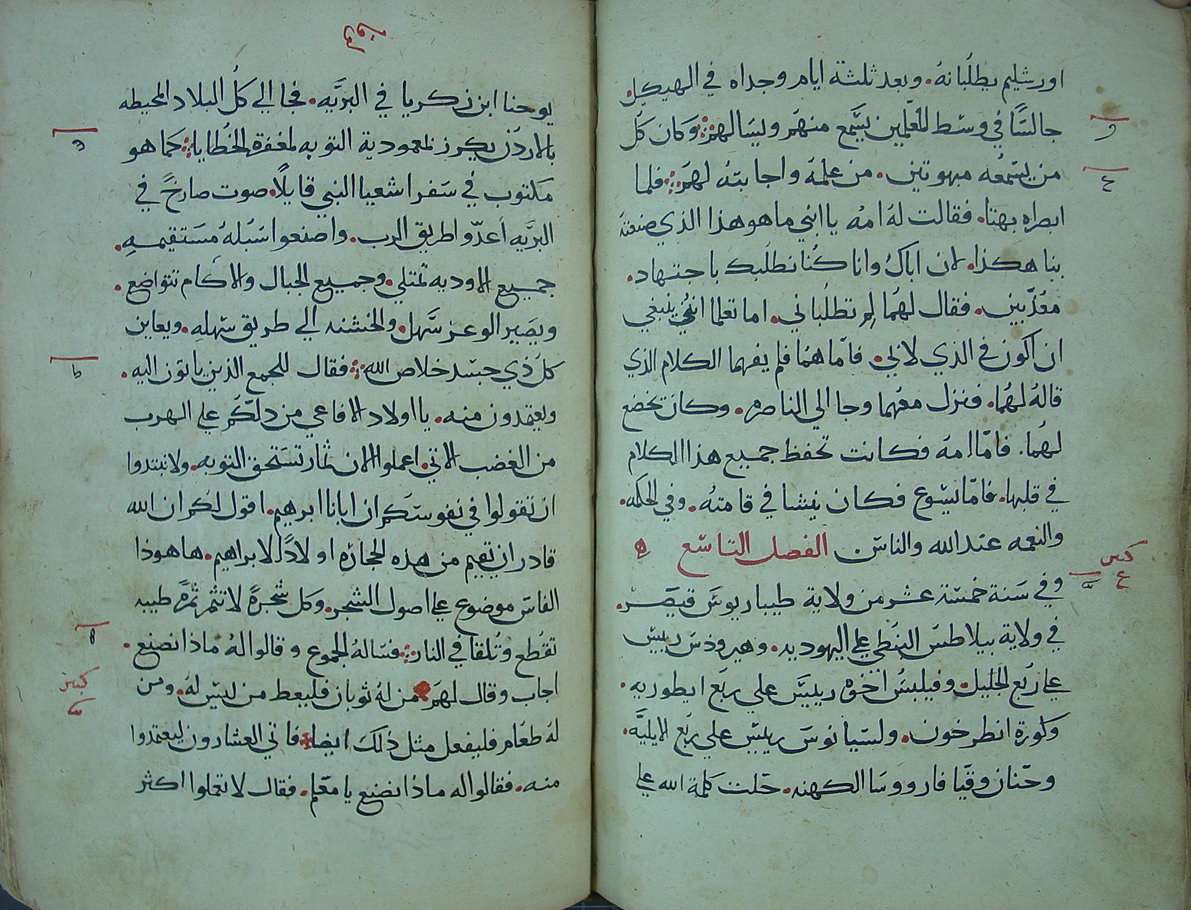 اورشليم يطلُبانهُ. وبعد ثلثة ايام وجداه في الهيكل.
جالسًا في وسط المعلمين يسَمع منهم ويسَالهم وكان كُل
من يسَمعُه مبهوتين. من علمهُ واجابتهُ لهم فلما
ابصراه بهتا. فقالت لهُ امهُ يا ابني ما هو هذا الذي صنعتهُ
بنا هكذا. لان اباكَ وانا كُنا نطلَبك باجتهاد.
معُذّبين. فقال لهُما لِمَ تطلُباني. اما تعلما انني ينبغي
ان اكون في الذي لابي. فامّا همُا فلم يفهما الكلام الذي
قالهُ لهمُا. فنزل معهُما وجا الي الناصره. وكان تخضع
لهمُا. فامّا امهُ فكانت تحفظ جميع هذا الكلام
في قلبها. فامّا يسَوع فكان ينشا في قامتهُ. وفي الحكمه.
والنعمه عند الله والناسَ الفصل التاسَع ه
وفي سَنة خمسَة عشر من ولاية طيباريوسَ قيصَر.
في ولاية بيلاطسَ النبطي علي اليهوديه. وهيرودسَ رييسَ
علي ربَع الجليل. وفيلبسَ اخوه رييسَ علي ربَع ايطوريه.
وكورة انطرخون. ولسَانيوسَ رييسَ علي ربَع الايليَّه.
وحَنان وقيَافا روُوسَا الكهنه. حَلت كلمة الله علي
لوقا
يوحنا ابن زكريا في البريَّه. فجا الي كلُ البلاد المحيطه
بالاردُن يكرز بمعمودية التوبه لمغفرة الخُطايا كما هو
مكتوب في سَفر اشعيا النبي قايلاً. صوت صارخ في
البريَّه اعدّوا طريق الرب. واصنعوا سَبلهُ مسَتقيمه.
جميع الاوديه تمتلي. وجميع الجبال والاكام تتواضع.
ويصَير الوعر سَهل. والخشنه الي طريق سَهله. ويعاين
كلُ ذي جسَد خلاص الله فقال للجمع الذين ياتون اليه.
ويعتمدون منه. يا اولاد الافاعي من دلّكمُ علي الهرب
من الغضب الاتي. اعملوا الان ثمار تسَتحق التوبه. ولا تبتدوا
ان تقولوا في نفوسَكم ان ابانا ابرهيم. اقول لكم ان الله
قادر ان يقيم من هذه الحجاره اولادًا لابراهيم. ها هوذا
الفاسَ موضوع علي اصول الشجر. وكل شجرة لا تثمر ثمرة طيبه
تقُطع وتُلقا في النار فسَالهُ الجموع وقالوا لهُ ماذا نصنع.
اجاب وقال لهم من لهُ ثوبان فليعط من ليسَ لهُ. ومن
لهُ طعَام فليفعل مثل ذلك ايضا. فاتي العشارون ليعتمدوا
منه. فقالوا له ماذا نصنع يا معلم. فقال لا تعملوا اكثر